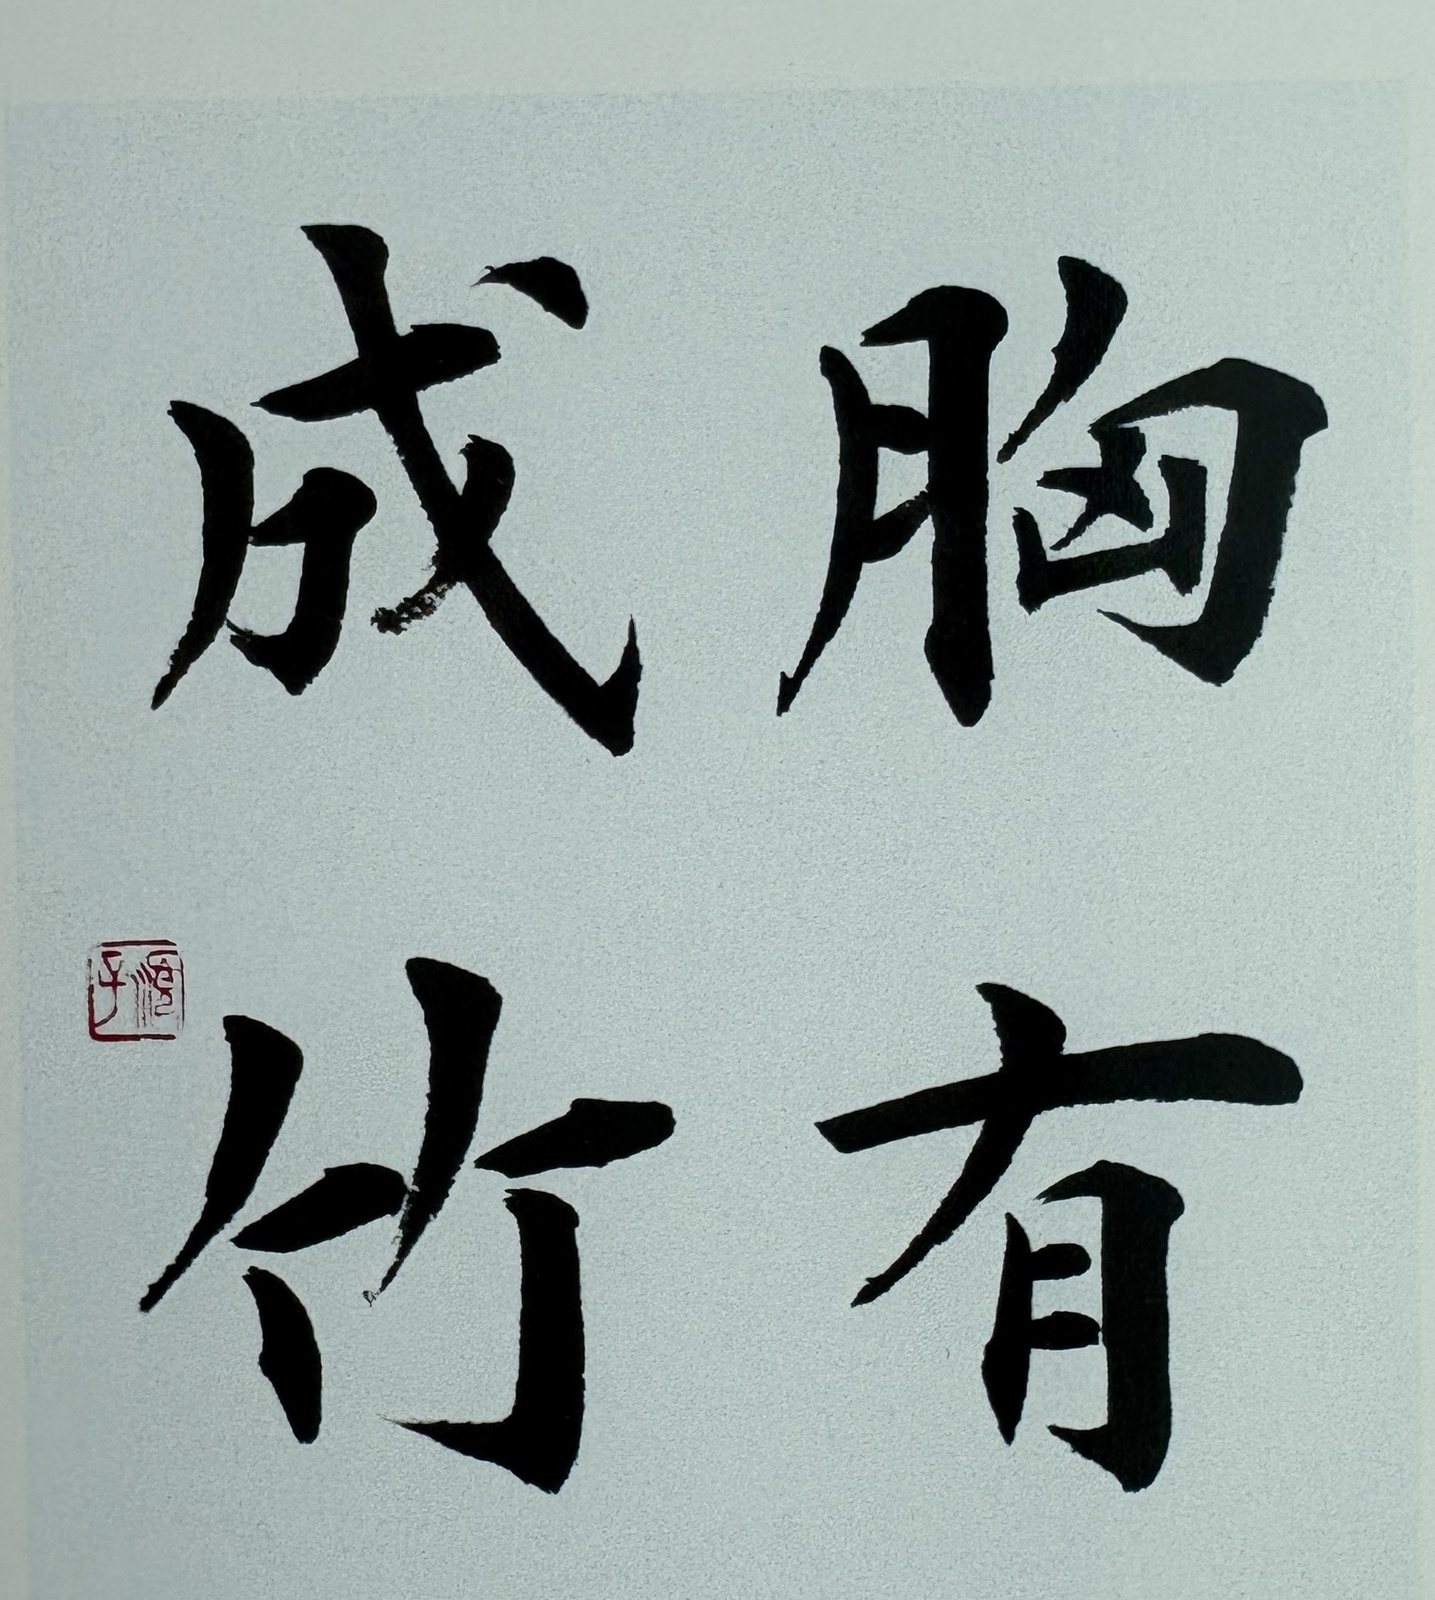 胸有
成竹